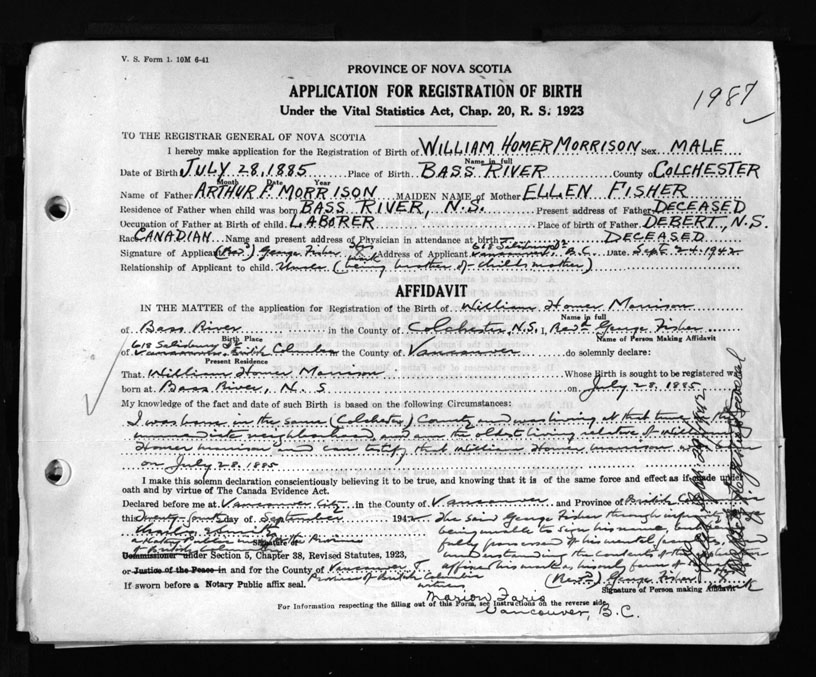 V. S. Form 1. 10M 6-41
PROVINCE OF NOVA SCOTIA
APPLICATION FOR REGISTRATION OF BIRTH
Under the Vital Statistics Act, Chap. 20, R. S. 1923
1987
TO THE REGISTRAR GENERAL OF NOVA SCOTIA
I hereby make application for the Registration of Birth of WILLIAM HOMER MORRISON Sex MALE
Name in full
Date of Birth JULY 28, 1885 Place of Birth BASS RIVER County of COLCHESTER
Month Date Year
Name of Father ARTHUR F. MORRISON MAIDEN NAME of Mother ELLEN FISHER
Residence of Father when child was born BASS RIVER, N.S. Present address of Father DECEASED
Occupation of Father at Birth of child LABORER Place of birth of Father DEBERT, N.S.
Race CANADIAN Name and present address of Physician in attendance at birth DECEASED
618 Salisbury Dr
Signature of Applicant George Fisher his mark Address of Applicant Vancouver, B.C. Date Sept 24, 1942
Relationship of Applicant to child Uncle (being brother of child's mother)
AFFIDAVIT
IN THE MATTER of the application for Registration of the Birth of William Homer Morrison
Name in full
of Bass River in the County of Colchester, N.S. I, George Fisher
Birth Place Name of Person Making Affidavit
618 Salisbury Dr
of Vancouver, British Columbia the County of Vancouver do solemnly declare:
Present Residence
That William Homer Morrison Whose Birth is sought to be registered was
born at Bass River, N.S on July 28, 1885
My knowledge of the fact and date of such Birth is based on the following Circumstances:
I was born in the same (Colchester) County and was living at that time in the
immediate neighborhood and am the oldest living relative of
Homer Morrison and can testify that William Homer Morrison
on July 28, 1885
I make this solemn declaration conscientiously believing it to be true, and knowing that it is of the same force and effect as if made under
oath and by virtue of The Canada Evidence Act.
Declared before me at Vancouver City in the County of Vancouver and Province of British
this Twenty fourth day of September 1942 The said George Fisher through
being unable to sign his name, but
a Notary Public in the Province fully possessed of his mental
Signature of
of British Columbia
Commissioner under Section 5, Chapter 38, Revised Statutes, 1923, understanding the contents of the
or Justice of the Peace in and for the County of Vancouver affixes his mark
Province of British Columbia
If sworn before a Notary Public affix seal. witness George Fisher his mark
Signature of Person making Affidavit
Marion Faris
For Information respecting the filling out of this Form, see Instructions on the reverse side.
Vancouver, B.C.